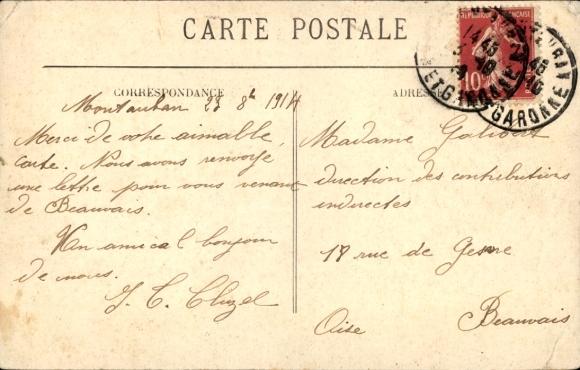 CARTE POSTALE
CORRESPONDANCE
ADRESSE
Montauban 23 8b 1914
Merci de votre aimable
carte. Nous avons renvoyé
une lettre pour vous venant
de Beauvais.
Un amical bonjour
de nous.
J. C. Cluzel
Madame Galibert
direction des contributions
indirectes
18 rue de Gesvre
Beauvais
Oise
10
ET GARONNE
GARONNE